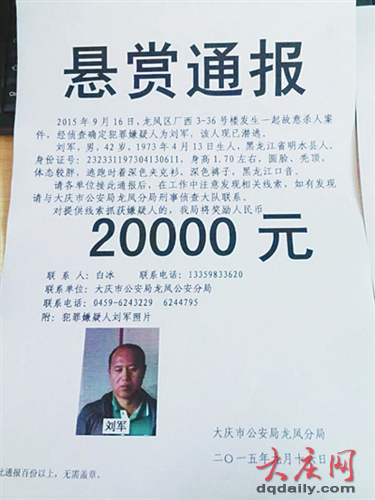 悬赏通报
2015年9月16日,龙凤区厂西3-36号楼发生一起故意杀人案
件,经侦查确定犯罪嫌疑人为刘军,该人现已潜逃。
刘军,男,42岁,1973年4月13日生人,黑龙江省明水县人。
身份证号:232331197304130611,身高1.70左右,圆脸、秃顶,
体态较胖,逃跑时着深色夹克衫、深色裤子,黑龙江口音。
请各单位接此通报后,在工作中注意发现相关线索,如有发现
请与大庆市公安局龙凤分局刑事侦查大队联系。
对提供线索抓获嫌疑人的,我局将奖励人民币
20000 元
联系人:白冰 联系电话:13359833620
联系单位:大庆市公安局龙凤公安分局
联系电话:0459-6243229 6244795
附:犯罪嫌疑人刘军照片
刘军
大庆市公安局龙凤分局
二〇一五年九月十六日
此通报百份以上,无需盖章。
大庆网
dqdaily.com